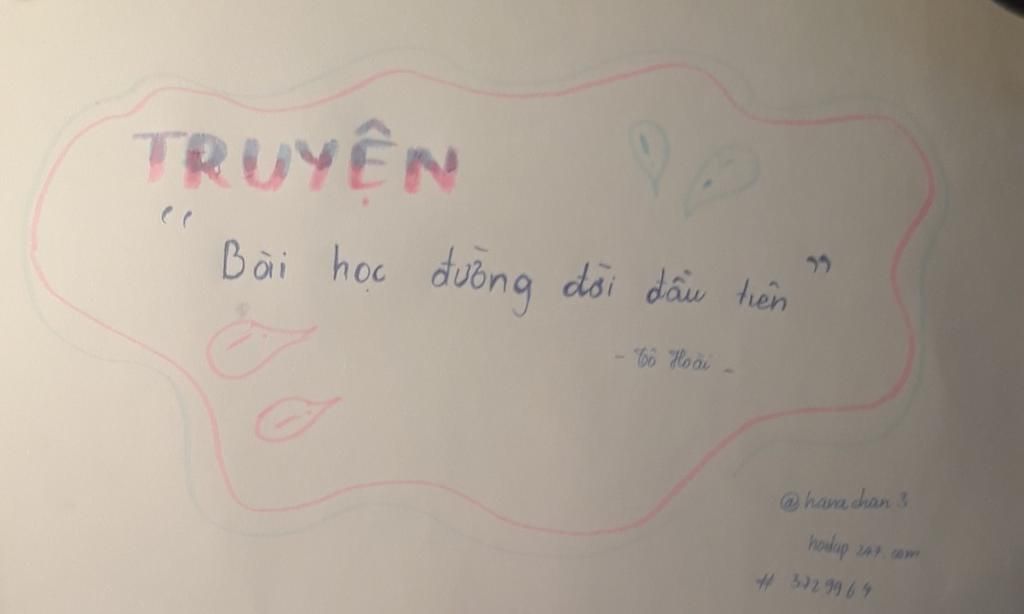 TRUYỆN
“Bài học đường đời đầu tiên”
- Tô Hoài -
@hanachan3
hoidap247.com
# 3729964